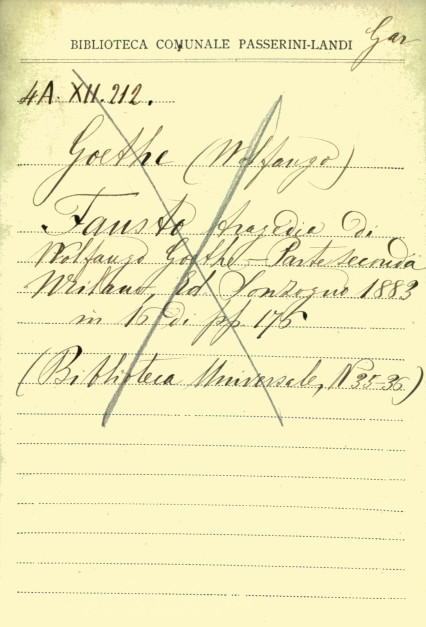 BIBLIOTECA COMUNALE PASSERINI-LANDI
Gar
4A. XII. 212.
Goethe (Wolfango)
Fausto tragedia di
Wolfango Goethe - Parte seconda
Milano, Ed Sonzogno 1883
in 16 di pp 176
(Biblioteca Universale, N 35-36)